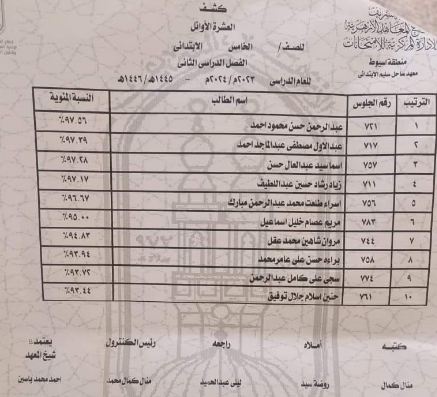 كشف
العشرة الأوائل
للصف / الخامس الابتدائى
الفصل الدراسى الثانى
للعام الدراسى ٢٠٢٣م/٢٠٢٤م - ١٤٤٥هـ/١٤٤٦هـ
الأزهر الشريف
قطاع المعاهد الأزهرية
الإدارة المركزية للامتحانات
منطقة أسيوط
معهد ساحل سليم الابتدائى
الترتيب رقم الجلوس اسم الطالب النسبة المئوية
١ ٧٢١ عبدالرحمن حسن محمود احمد ٩٧.٥٦٪
٢ ٧١٧ عبدالاول مصطفى عبدالماجد احمد ٩٧.٣٩٪
٣ ٧٥٧ اسما سيد عبدالعال حسن ٩٧.٢٨٪
٤ ٧١١ زياد رشاد حسين عبداللطيف ٩٧.١٧٪
٥ ٧٥٦ اسراء طلعت محمد عبدالرحمن مبارك ٩٦.٦٧٪
٦ ٧٨٣ مريم عصام خليل اسماعيل ٩٥.٠٠٪
٧ ٧٤٤ مروان شاهين محمد عقل ٩٤.٨٣٪
٨ ٧٥٨ براءه حسن على عامر محمد ٩٣.٩٤٪
٩ ٧٧٤ سجى على كامل عبدالرحمن ٩٣.٧٢٪
١٠ ٧٦١ حنين اسلام جلال توفيق ٩٣.٤٤٪
كتبه أملاه راجعه رئيس الكنترول يعتمد::
شيخ المعهد
منال كمال روضة سيد ليلى عبدالحميد منال كمال محمد احمد محمد ياسين